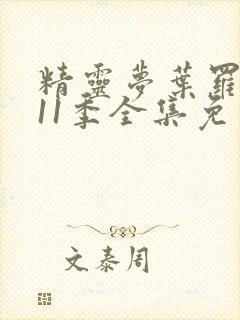 精靈夢葉羅
11季全集免
文泰周